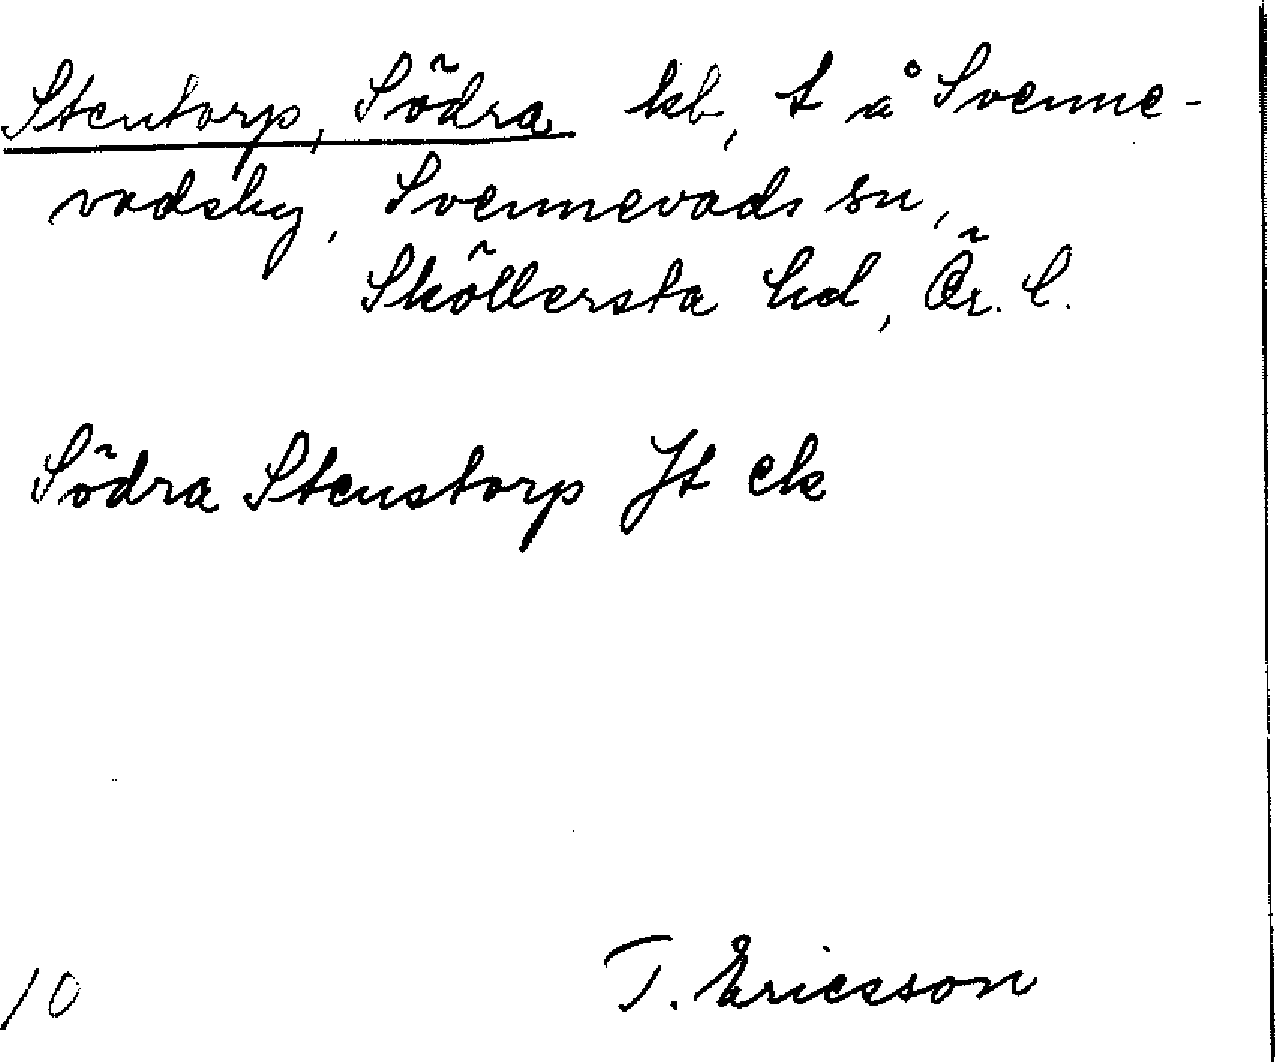 Stentorp, Södra kb, t å Svenne-
vadsby, Svennevads sn,
Sköllersta hd, Ör. l.
Södra Stenstorp Jt ek
10 T. Ericsson